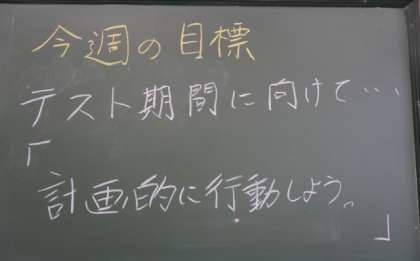 今週の目標
テスト期間に向けて…
「
計画的に行動しよう。
」